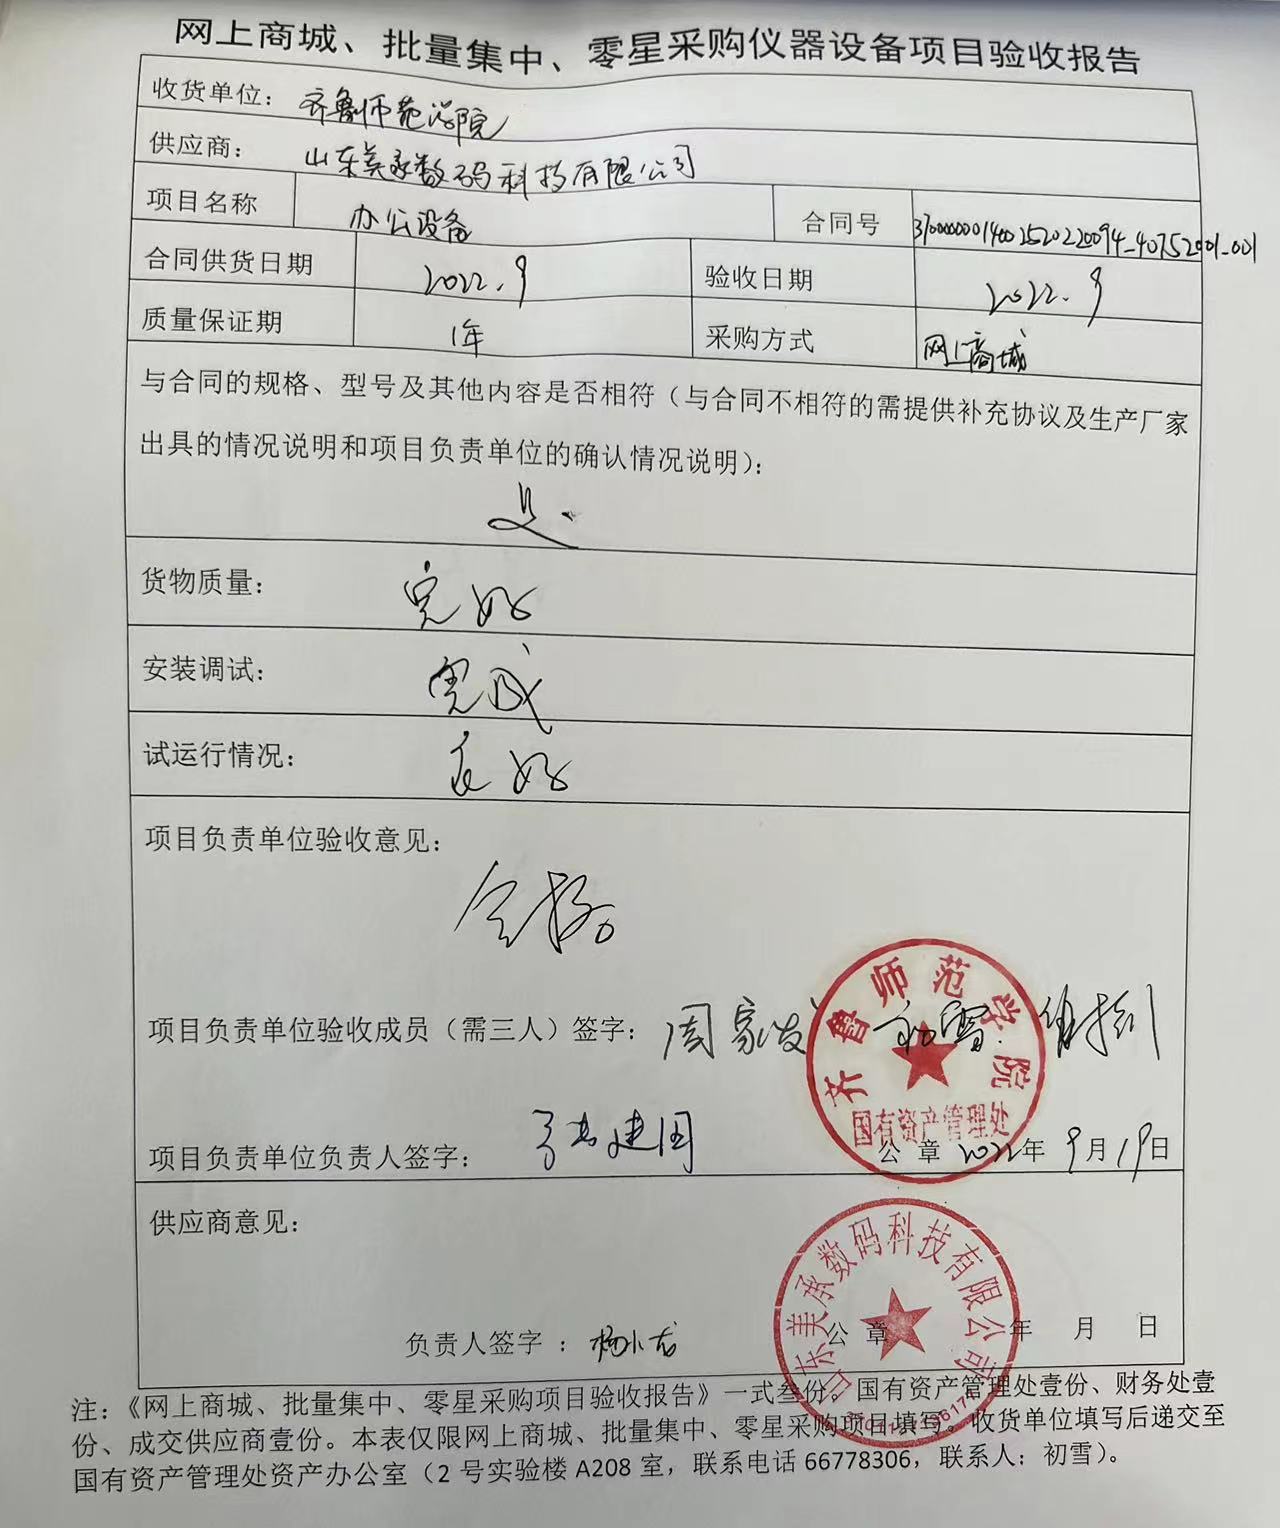 网上商城、批量集中、零星采购仪器设备项目验收报告
收货单位： 齐鲁师范学院
供应商： 山东美承数码科技有限公司
项目名称 办公设备 合同号 37000000014002520220094-40752001-001
合同供货日期 2022.9 验收日期 2022.9
质量保证期 1年 采购方式 网上商城
与合同的规格、型号及其他内容是否相符（与合同不相符的需提供补充协议及生产厂家
出具的情况说明和项目负责单位的确认情况说明）：
是.
货物质量： 完好
安装调试： 完成
试运行情况： 良好
项目负责单位验收意见：
合格。
项目负责单位验收成员（需三人）签字： 周家发 初雪
齐鲁师范学院
国有资产管理处
项目负责单位负责人签字： 建国 公 章 2022年 9月19日
供应商意见：
山东美承数码科技有限公司
负责人签字 ： 杨小龙 公 章 年 月 日
注：《网上商城、批量集中、零星采购项目验收报告》一式叁份。国有资产管理处壹份、财务处壹
份、成交供应商壹份。本表仅限网上商城、批量集中、零星采购项目填写。收货单位填写后递交至
国有资产管理处资产办公室（2 号实验楼 A208 室，联系电话 66778306，联系人：初雪）。